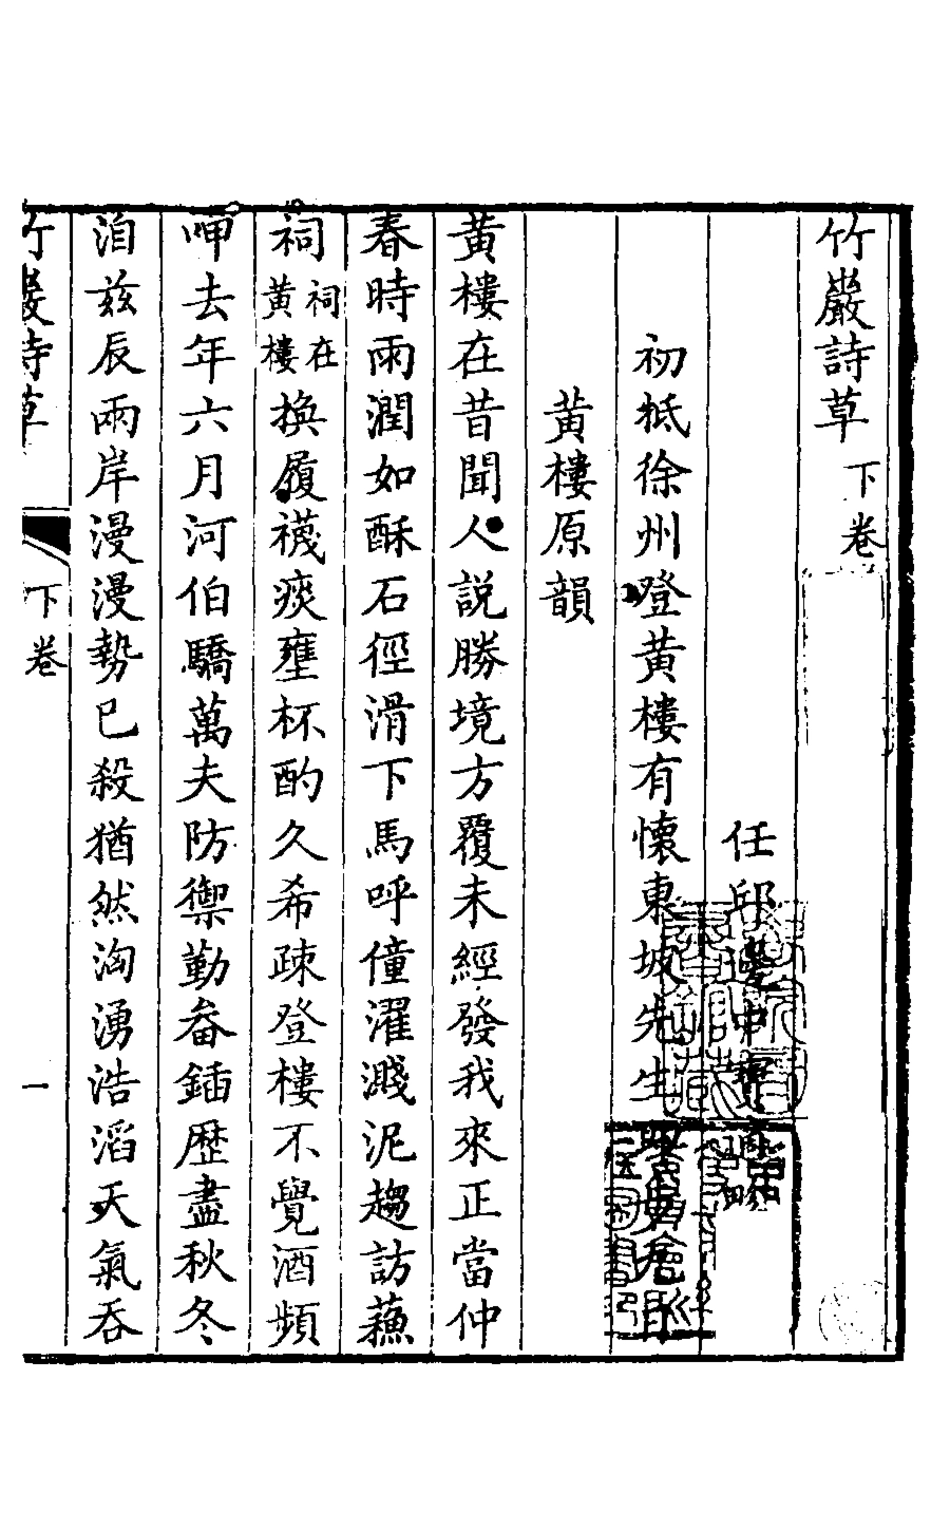 竹巖詩草 下卷
任邱邊中寶
初抵徐州登黄樓有懷東坡先生
黄樓原韻
黄樓在昔聞人説勝境方覆未經發我來正當仲
春時雨潤如酥石徑滑下馬呼僮濯濺泥趨訪蘓
祠祠在黄樓換履襪痰壅杯酌久希疎登樓不覺酒頻
呷去年六月河伯驕萬夫防禦勤畚鍤歴盡秋冬
洎兹辰兩岸漫漫勢已殺猶然洶湧浩滔天氣吞
竹巖詩草 下卷 一